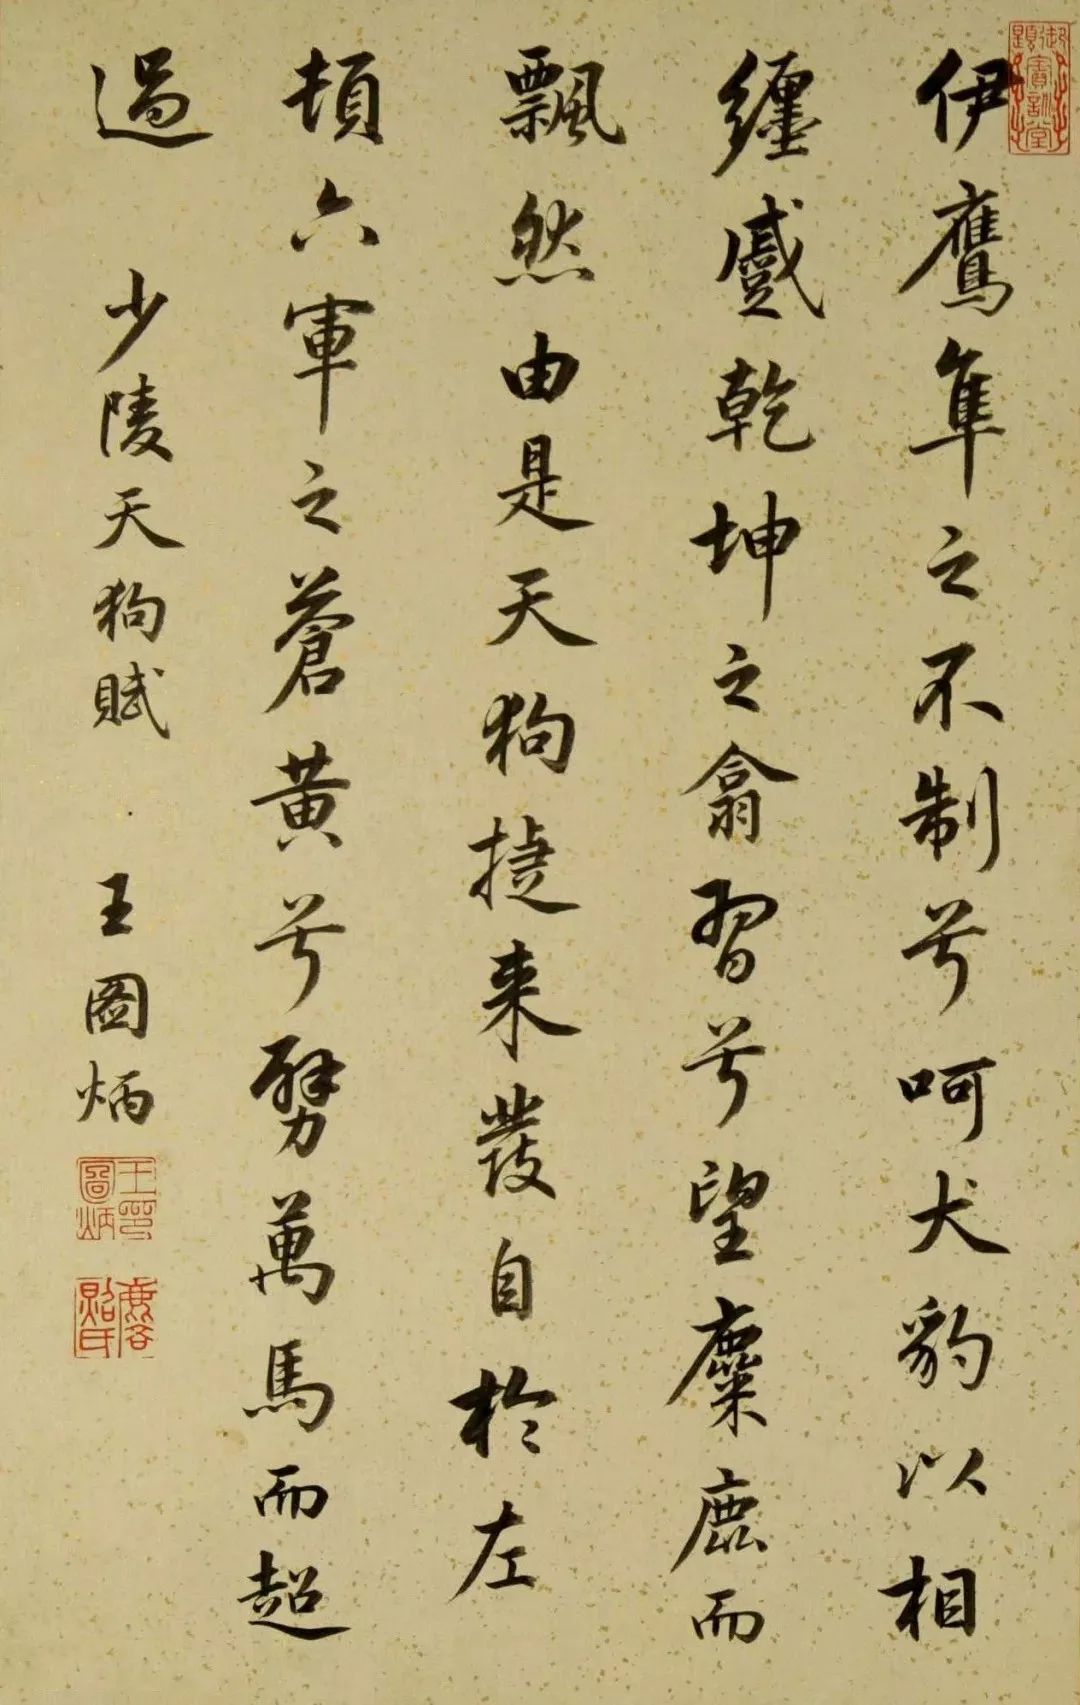 伊鷹隼之不制兮呵犬豹以相
纏蹙乾坤之翕習兮望麋鹿而
飄然由是天狗捷來發自於左
頓六軍之蒼黃兮劈萬馬而超
過
少陵天狗賦
王圖炳
王圖炳印